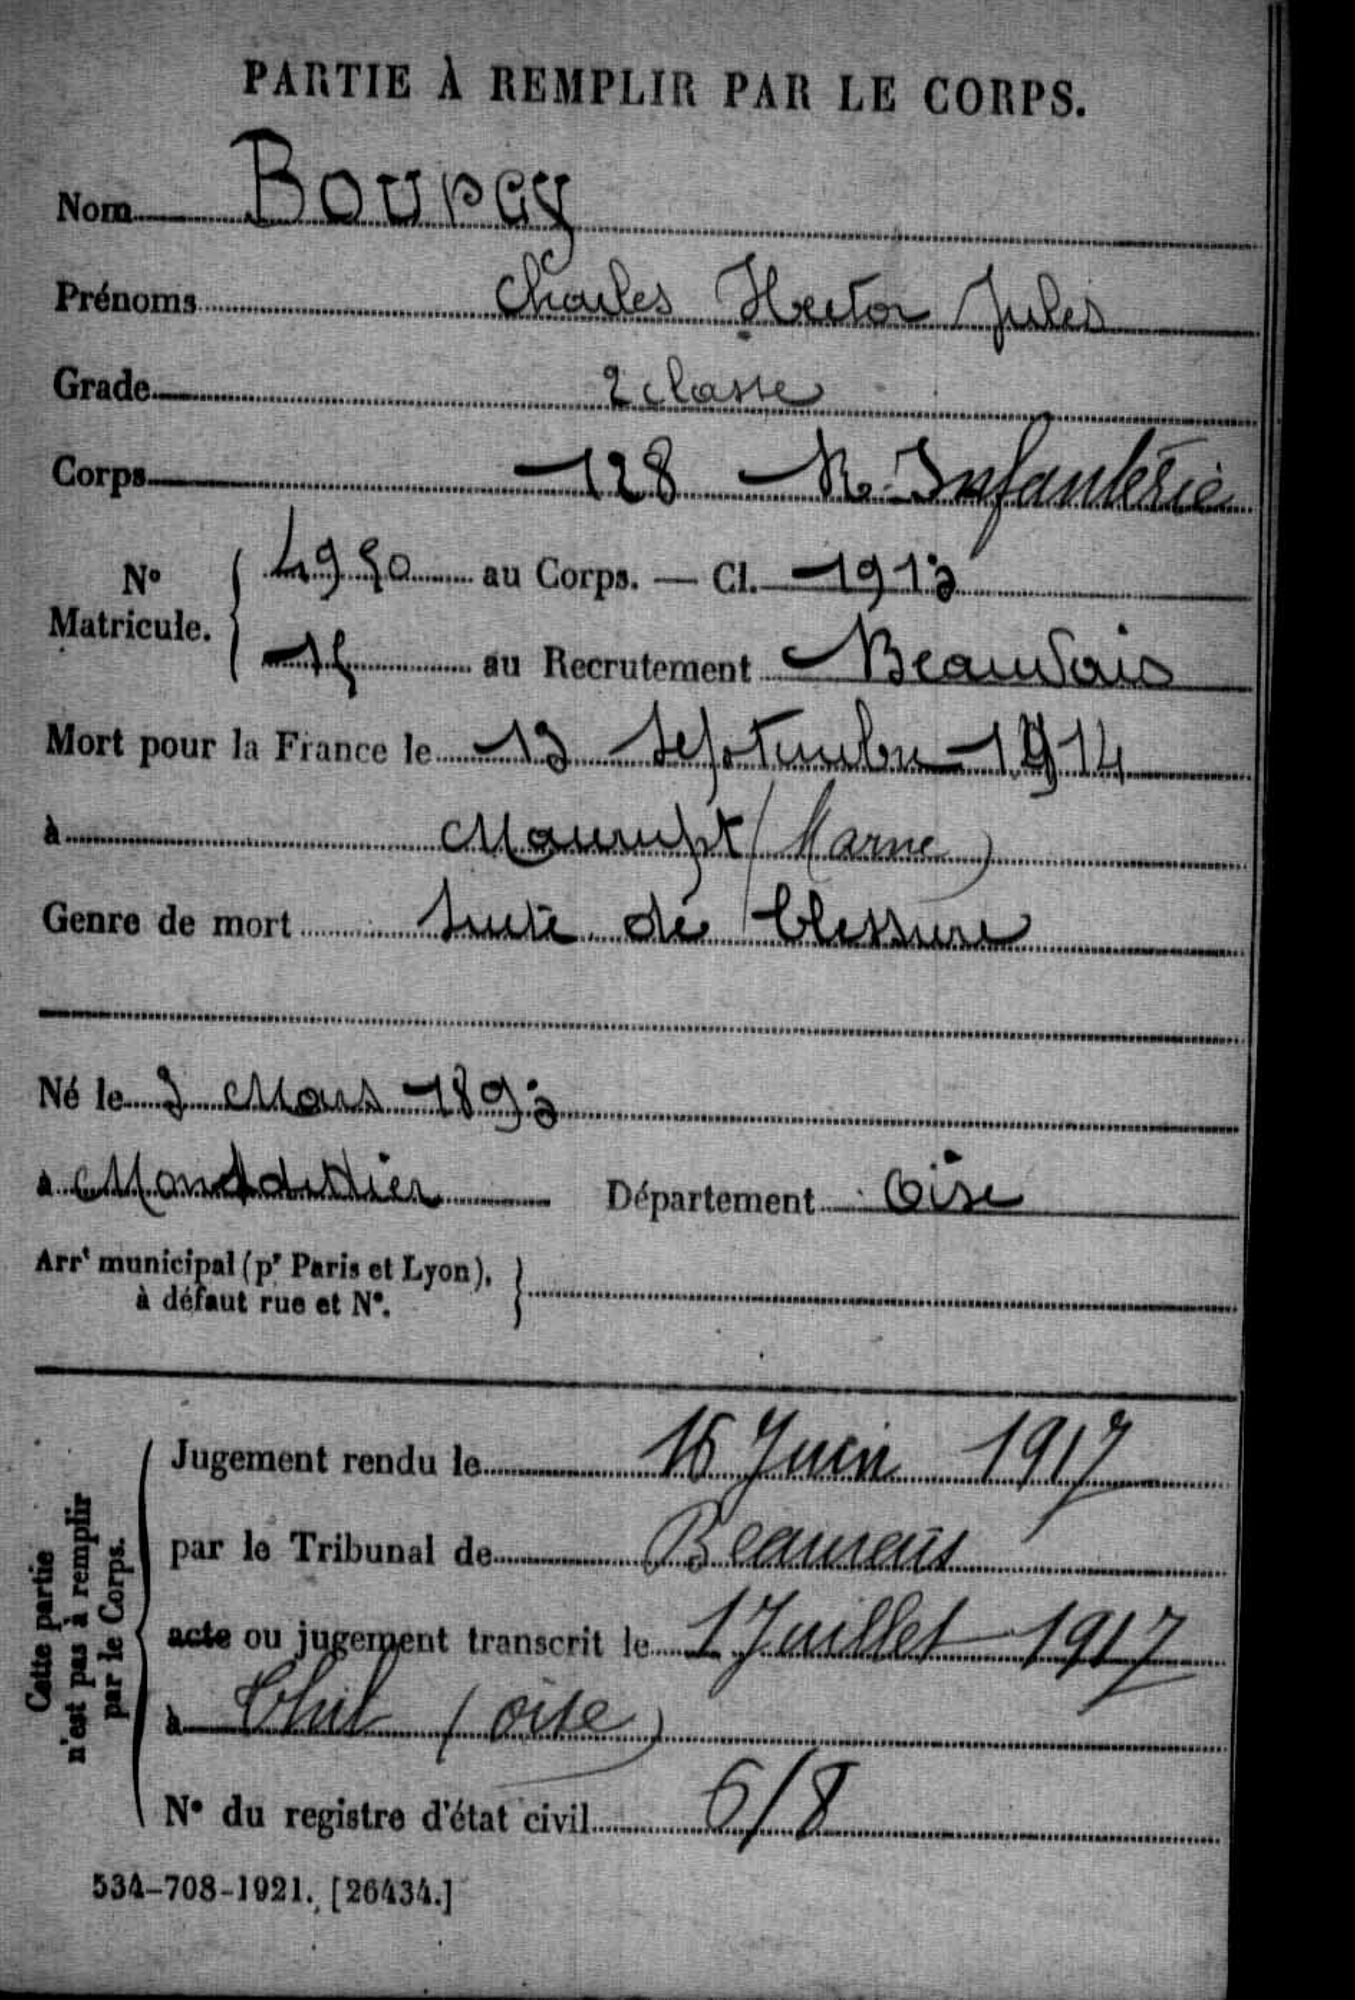 PARTIE À REMPLIR PAR LE CORPS.
Nom Bourgy
Prénoms Charles Hector Jules
Grade 2 classe
Corps 128 R. Infanterie
N° Matricule. { 4950 au Corps. — Cl. 1913
15 au Recrutement Beauvais
Mort pour la France le 13 Septembre 1914
à Maurupt (Marne)
Genre de mort Suite de blessure
Né le 3 Mars 1893
à Montdidier Département Oise
Arrt municipal (pr Paris et Lyon),
à défaut rue et N°.
Cette partie
n'est pas à remplir
par le Corps.
Jugement rendu le 16 Juin 1917
par le Tribunal de Beauvais
acte ou jugement transcrit le 1 Juillet 1917
à (Oise)
N° du registre d'état civil 6/8
534-708-1921. [26434.]